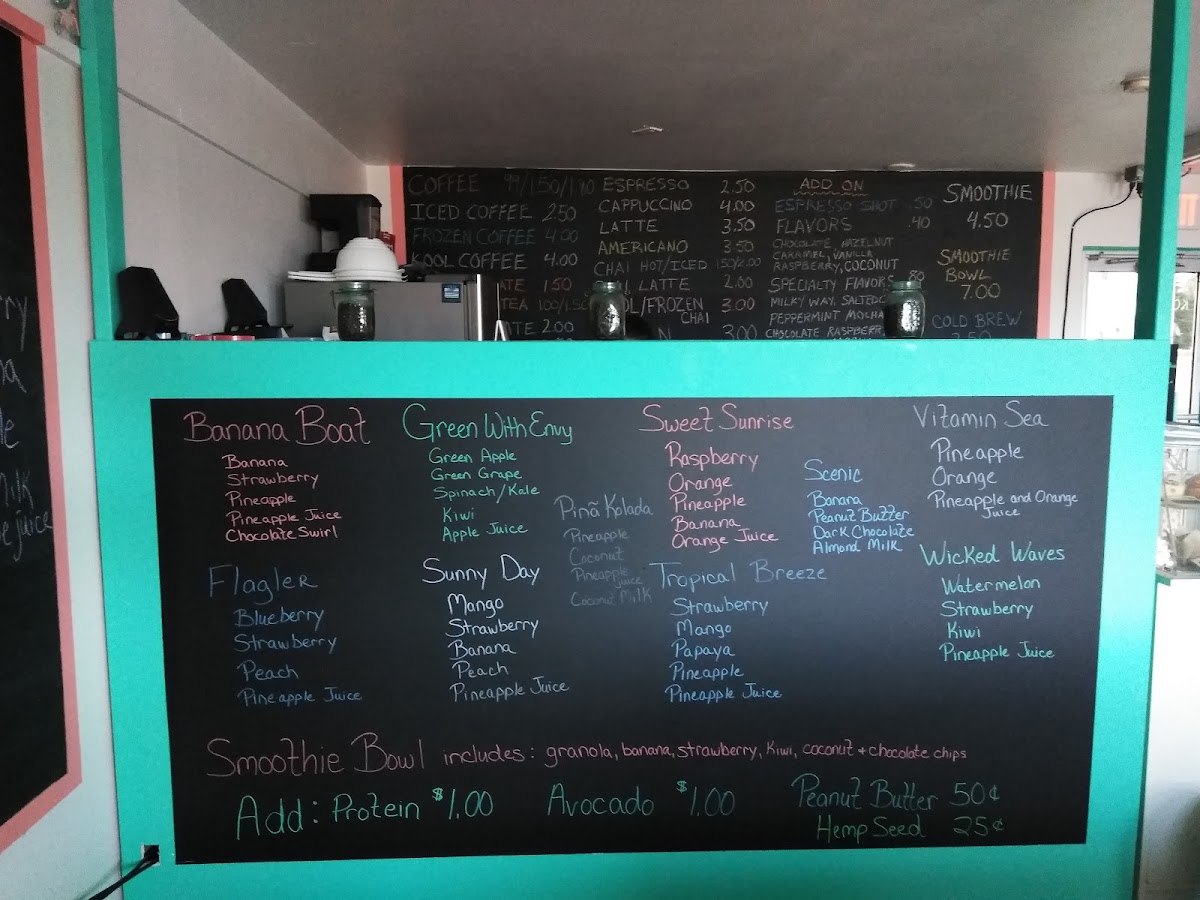 COFFEE 99/1.50/1.80
ICED COFFEE 2.50
FROZEN COFFEE 4.00
KOOL COFFEE 4.00
ATE 1.50
TEA 1.00/1.50
ATE 2.00
ESPRESSO 2.50
CAPPUCCINO 4.00
LATTE 3.50
AMERICANO 3.50
CHAI HOT/ICED 1.50/2.00
LATTE 2.00
OL/FROZEN 3.00
CHAI
N 3.00
ADD ON
ESPRESSO SHOT .50
FLAVORS .40
CHOCOLATE, HAZELNUT
CARAMEL, VANILLA
RASPBERRY, COCONUT
SPECIALTY FLAVORS .80
MILKY WAY, SALTED
PEPPERMINT MOCHA
CHOCOLATE RASPBERR
SMOOTHIE
4.50
SMOOTHIE
BOWL
7.00
COLD BREW
Banana Boat
Banana
Strawberry
Pineapple
Pineapple Juice
Chocolate Swirl
Green With Envy
Green Apple
Green Grape
Spinach/Kale
Kiwi
Apple Juice
Pinã Kolada
Pineapple
Coconut
Pineapple
Juice
Coconut Milk
Sweet Sunrise
Raspberry
Orange
Pineapple
Banana
Orange Juice
Scenic
Banana
Peanut Butter
Dark Chocolate
Almond Milk
Vitamin Sea
Pineapple
Orange
Pineapple and Orange
Juice
Flagler
Blueberry
Strawberry
Peach
Pineapple Juice
Sunny Day
Mango
Strawberry
Banana
Peach
Pineapple Juice
Tropical Breeze
Strawberry
Mango
Papaya
Pineapple
Pineapple Juice
Wicked Waves
Watermelon
Strawberry
Kiwi
Pineapple Juice
Smoothie Bowl includes: granola, banana, strawberry, Kiwi, coconut + chocolate chips
Add: Protein $1.00 Avocado $1.00 Peanut Butter 50¢
Hemp Seed 25¢